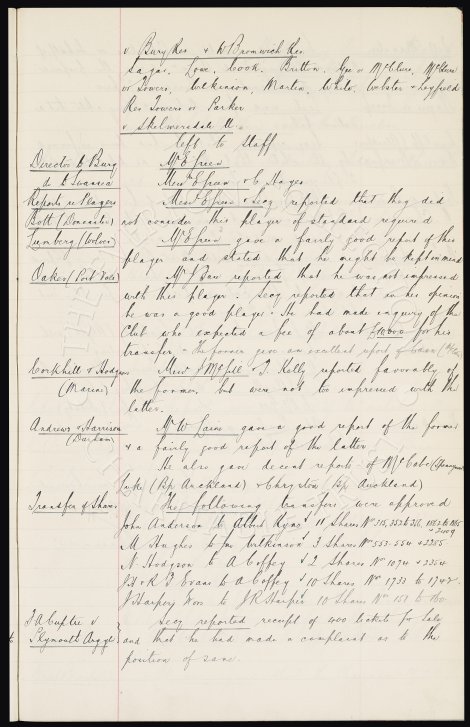 v Bury Res & W Bromwich Res
Sagar, Lowe, Cook, Britton, Gee or McClure, McClure
or Towers, Wilkinson, Martin, White, Webster & Leyfield
Res Towers or Parker
v Skelmersdale U.
Left to Staff
Director to Bury Mr E Green
do to Swansea Messrs E Green & C Hayes
Reports re Players Messrs E Green & Secy reported that they did
Bott (Doncaster) not consider this player of standard required
Lumberg (Wolves) Mr E Green gave a fairly good report of this
player and stated that he might be kept in mind
Oakes (Port Vale) Mr J reported that he was not impressed
with this player. Secy reported that in his opinion
he was a good player. He had made inquiry of the
Club who expected a fee of about £10,000 for his
transfer - The former gave an excellent report of
Cockhill & Hodgson Messrs J & T. Kelly reported favorably of
(Marine) the former but were not so impressed with the
latter.
Andrews & Harrison Mr W gave a good report of the former
(Durham) & a fairly good report of the latter
He also gave decent reports of
(Bp Auckland) & (Bp Auckland)
Transfer of Shares The following transfers were approved
John Anderson to Albert 11 Shares
M Hughes to Wilkinson 3 Shares Nos 553-554 & 2355
N Hodgson to A Coffey 2 Shares Nos 1094 & 2354
J H & R T Evans to A Coffey 10 Shares Nos 1733 to 1742
J Harper to J R Harper 10 Shares Nos 151 to 160
T A Curtis v Secy reported receipt of 400 tickets for Sale
Plymouth Argyle and that he had made a complaint as to the
position of same.